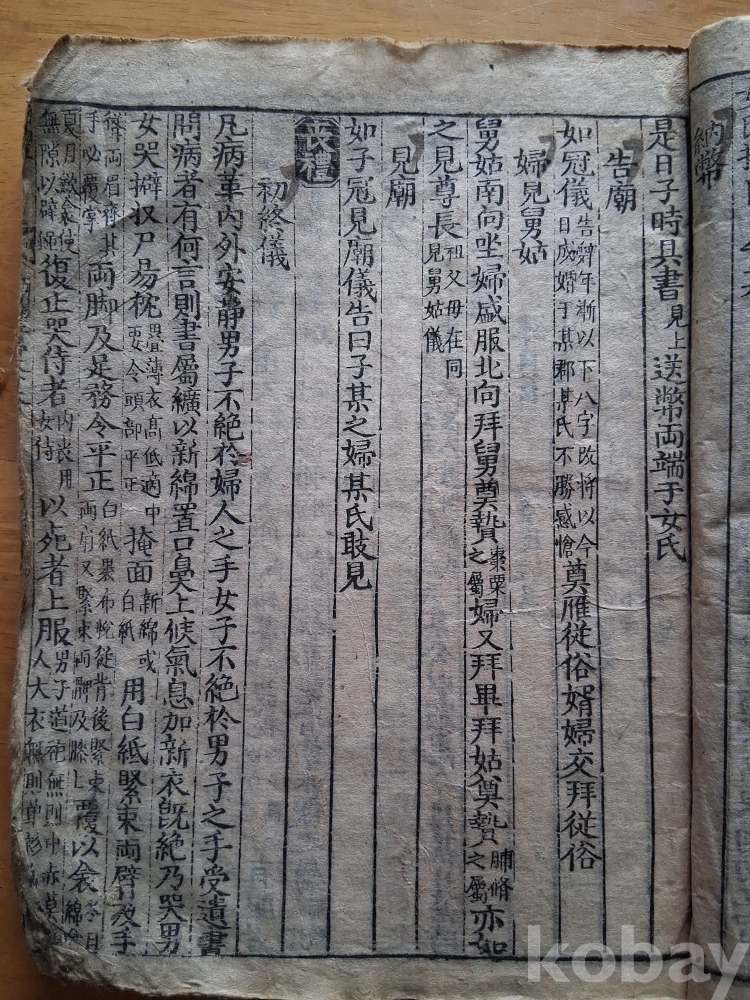 納幣
是日子時具書見上送幣両端于女氏
告廟
如冠儀告辞年漸以下八字改将以今日成婚于某郡某氏不勝感愴奠雁従俗婿婦交拜従俗
婦見舅姑
舅姑南向坐婦盛服北向拜舅奠贄棗栗之屬婦又拜畢拜姑奠贄脯脩之屬亦如
之見尊長祖父母在同見舅姑儀
見廟
如子冠見廟儀告曰子某之婦某氏敢見
喪禮
初終儀
凡病革內外安静男子不絶扵婦人之手女子不絶扵男子之手受遺書
問病者有何言則書屬纊以新綿置口鼻上候氣息加新衣旣絶乃哭男
女哭擗扱尸易枕畳薄衣髙低適中要令頭部平正掩面新綿或白紙用白紙緊束両臂及手
両眉齊其手必覆掌両脚及足務令平正白紙裹布従背後緊束両肩又緊束両髀及膝上覆以衾冬月綿
夏月数衾使無隙以辟復止哭侍者内喪用女侍以死者上服男子道袍無則中赤莫人大衣無則
kobay